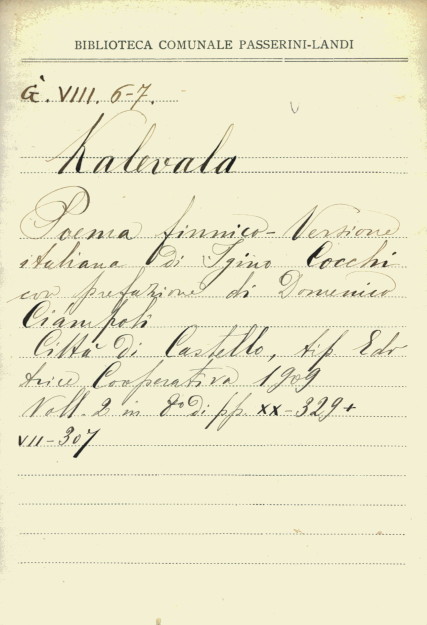 BIBLIOTECA COMUNALE PASSERINI-LANDI
G. VIII. 6-7.
Kalevala
Poema finnico - Versione
italiana di Igino Cocchi
con prefazione di Domenico
Ciàmpoli
Città di Castello, tip. Edi-
trice Cooperativa 1909
Voll. 2 in 8º di pp. XX-329+
VII-307